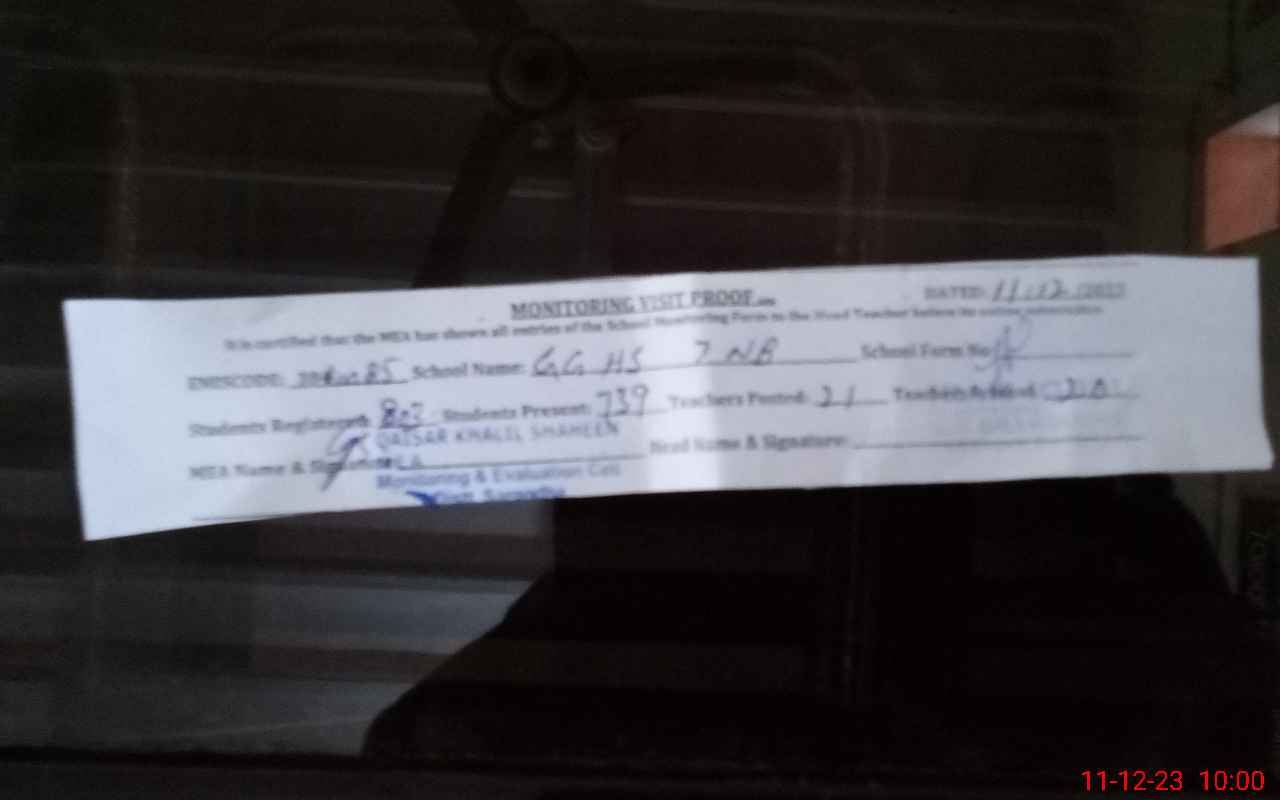 MONITORING VISIT PROOF
DATED: 11-12-2023
It is certified that the MEA has shown all entries of the School Monitoring Form to the Head Teacher before its online submission
EMISCODE: School Name: GGHS 7 NB School Form No
Students Registered: 803 Students Present: 739 Teachers Posted: 21 Teachers Present: 20
MEA Name & Signature: Head Name & Signature:
QAISAR KHALIL SHAHEEN
MEA
Monitoring & Evaluation Cell
Distt. Sargodha
11-12-23 10:00